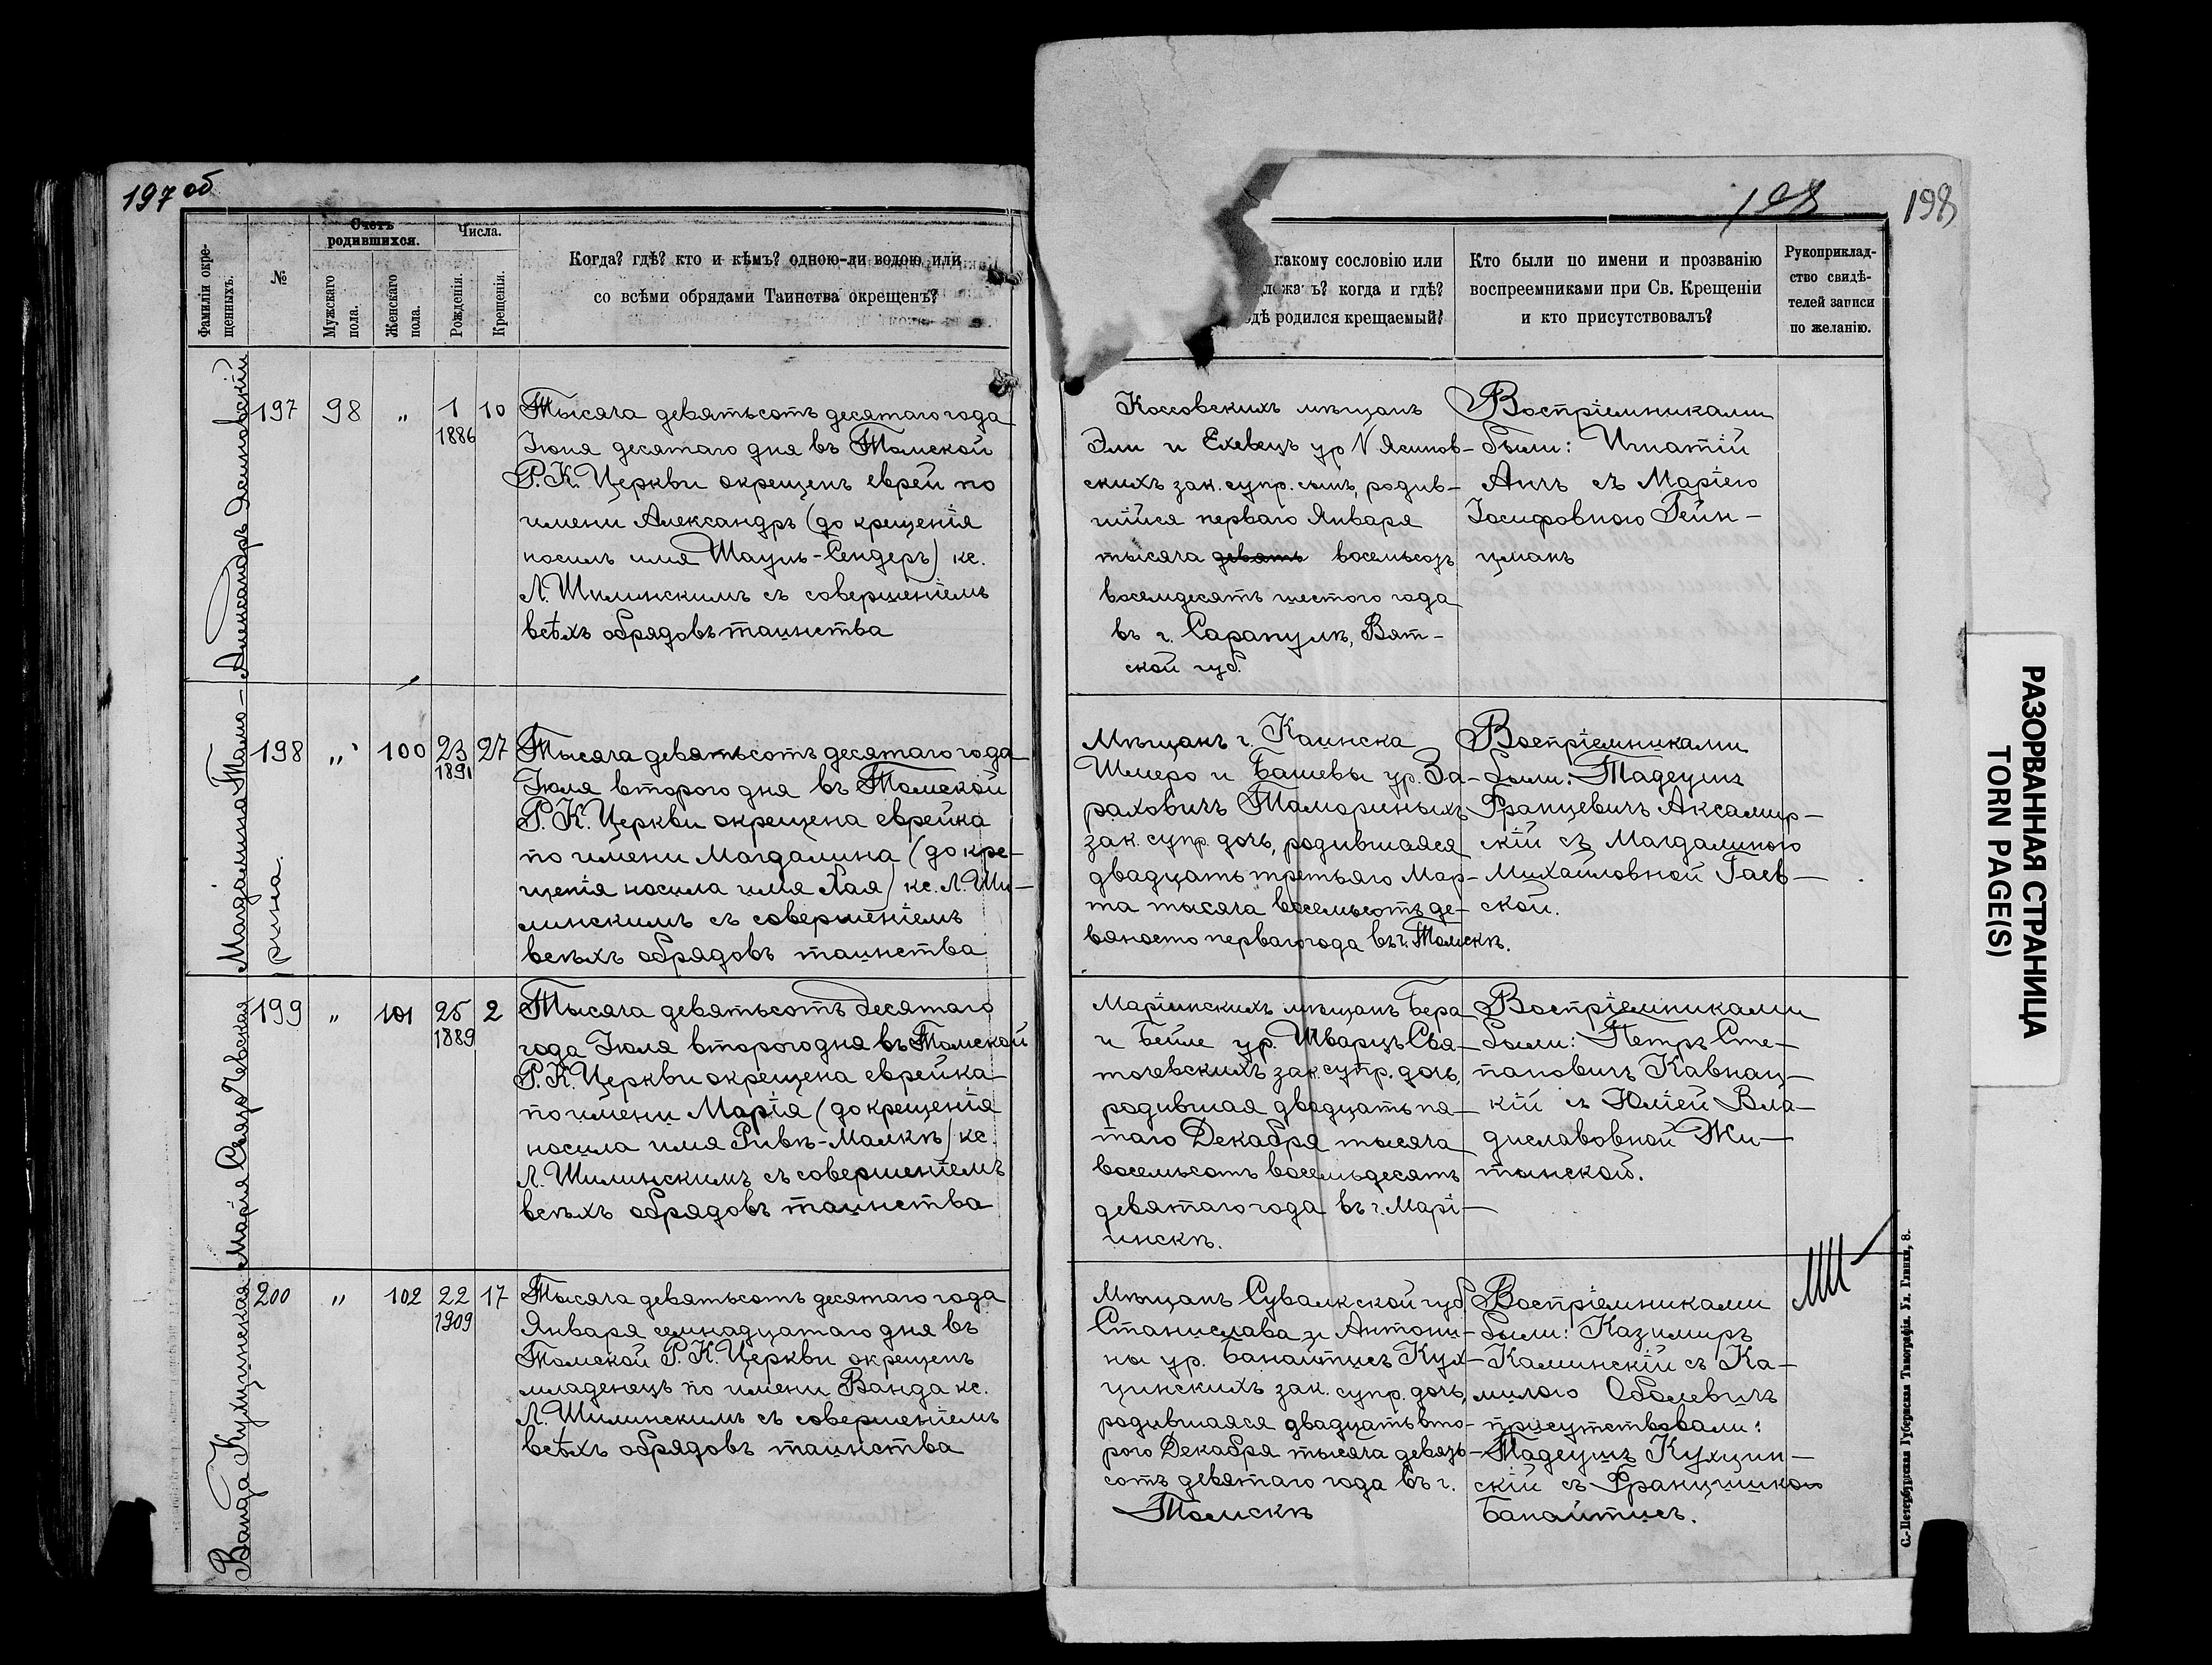 197 об
Фамиліи окре-
щенныхъ.
№
Счетъ
родившихся.
Мужскаго
пола.
Женскаго
пола.
Числа.
Рожденія.
Крещенія.
Когда? гдѣ? кто и кѣмъ? одною-ли водою или
со всѣми обрядами Таинства окрещенъ?
Александръ Ясиновскій
197 98 „ 1 10
1886
Тысяча девятьсотъ десятаго года
Іюня десятаго дня въ Томской
Р. К. Церкви окрещенъ еврей по
имени Александръ (до крещенія
носилъ имя Шаулъ-Сендеръ) кс.
Л. Шилинскимъ съ совершеніемъ
всѣхъ обрядовъ таинства
Магдалина Тамо-
рина.
198 „ 100 23 27
1891
Тысяча девятьсотъ десятаго года
Іюля второго дня въ Томской
Р. К. Церкви окрещена еврейка
по имени Магдалина (до кре-
щенія носила имя Хая) кс. Л. Ши-
линскимъ съ совершеніемъ
всѣхъ обрядовъ таинства
Марія Святочевская
199 „ 101 25 2
1889
Тысяча девятьсотъ десятаго
года Іюля второго дня въ Томской
Р. К. Церкви окрещена еврейка
по имени Марія (до крещенія
носила имя Ривѣ-Малкѣ) кс.
Л. Шилинскимъ съ совершеніемъ
всѣхъ обрядовъ таинства
Ванда Кухцинская
200 „ 102 22 17
1909
Тысяча девятьсотъ десятаго года
Января семнадцатаго дня въ
Томской Р. К. Церкви окрещенъ
младенецъ по имени Ванда кс.
Л. Шилинскимъ съ совершеніемъ
всѣхъ обрядовъ таинства
198
198
какому сословію или
ъ? когда и гдѣ?
родился крещаемый?
Кто были по имени и прозванію
воспреемниками при Св. Крещеніи
и кто присутствовалъ?
Рукоприклад-
ство свидѣ-
телей записи
по желанію.
Коссовскихъ мѣщанъ
Эли и Еховецъ ур N Ясинов-
скихъ зак. супр. сынъ, родив-
шійся перваго Января
тысяча девять восемьсотъ
восемдесятъ шестого года
въ г. Сарапулѣ, Вят-
ской губ.
Воспріемниками
были: Игнатій
Анъ съ Маріею
Іосифовною Гейн-
цманъ
Мѣщанъ г. Каинска
Шмеро и Башевы ур. За-
раховичъ Тамориныхъ
зак. супр. дочь, родившаяся
двадцать третьяго Мар-
та тысяча восемьсотъ де-
вяносто перваго года въ г. Томскѣ.
Воспріемниками
были: Тадеушъ
Францевичъ Аксамир-
скій съ Магдалиною
Михайловной Гаев-
ской.
Маріинскихъ мѣщанъ Бера
и Бейле ур. Шварцъ Свя-
точевскихъ зак. супр. дочь,
родившая двадцать пя-
таго Декабря тысяча
восемьсотъ восемьдесятъ
девятаго года въ г. Марі-
инскѣ.
Воспріемниками
были: Петръ Сте-
пановичъ Кавнац-
кій съ Юліей Вла-
диславовной Жи-
тынской.
Мѣщанъ Сувалкской губ.
Станислава и Антони-
ны ур. Банайтисъ Кух-
цинскихъ зак. супр. дочь,
родившаяся двадцать вто-
рого Декабря тысяча девять-
сотъ девятаго года въ г.
Томскѣ
Воспріемниками
были: Казимиръ
Каминскій съ Ка-
милою Оболевичъ
присутствовали:
Тадеушъ Кухцин-
скій съ Францишкою
Банайтисъ.
С.-Петербургская Губернская Типографія. Ул. Глинки, 8.
РАЗОРВАННАЯ СТРАНИЦА
TORN PAGE(S)